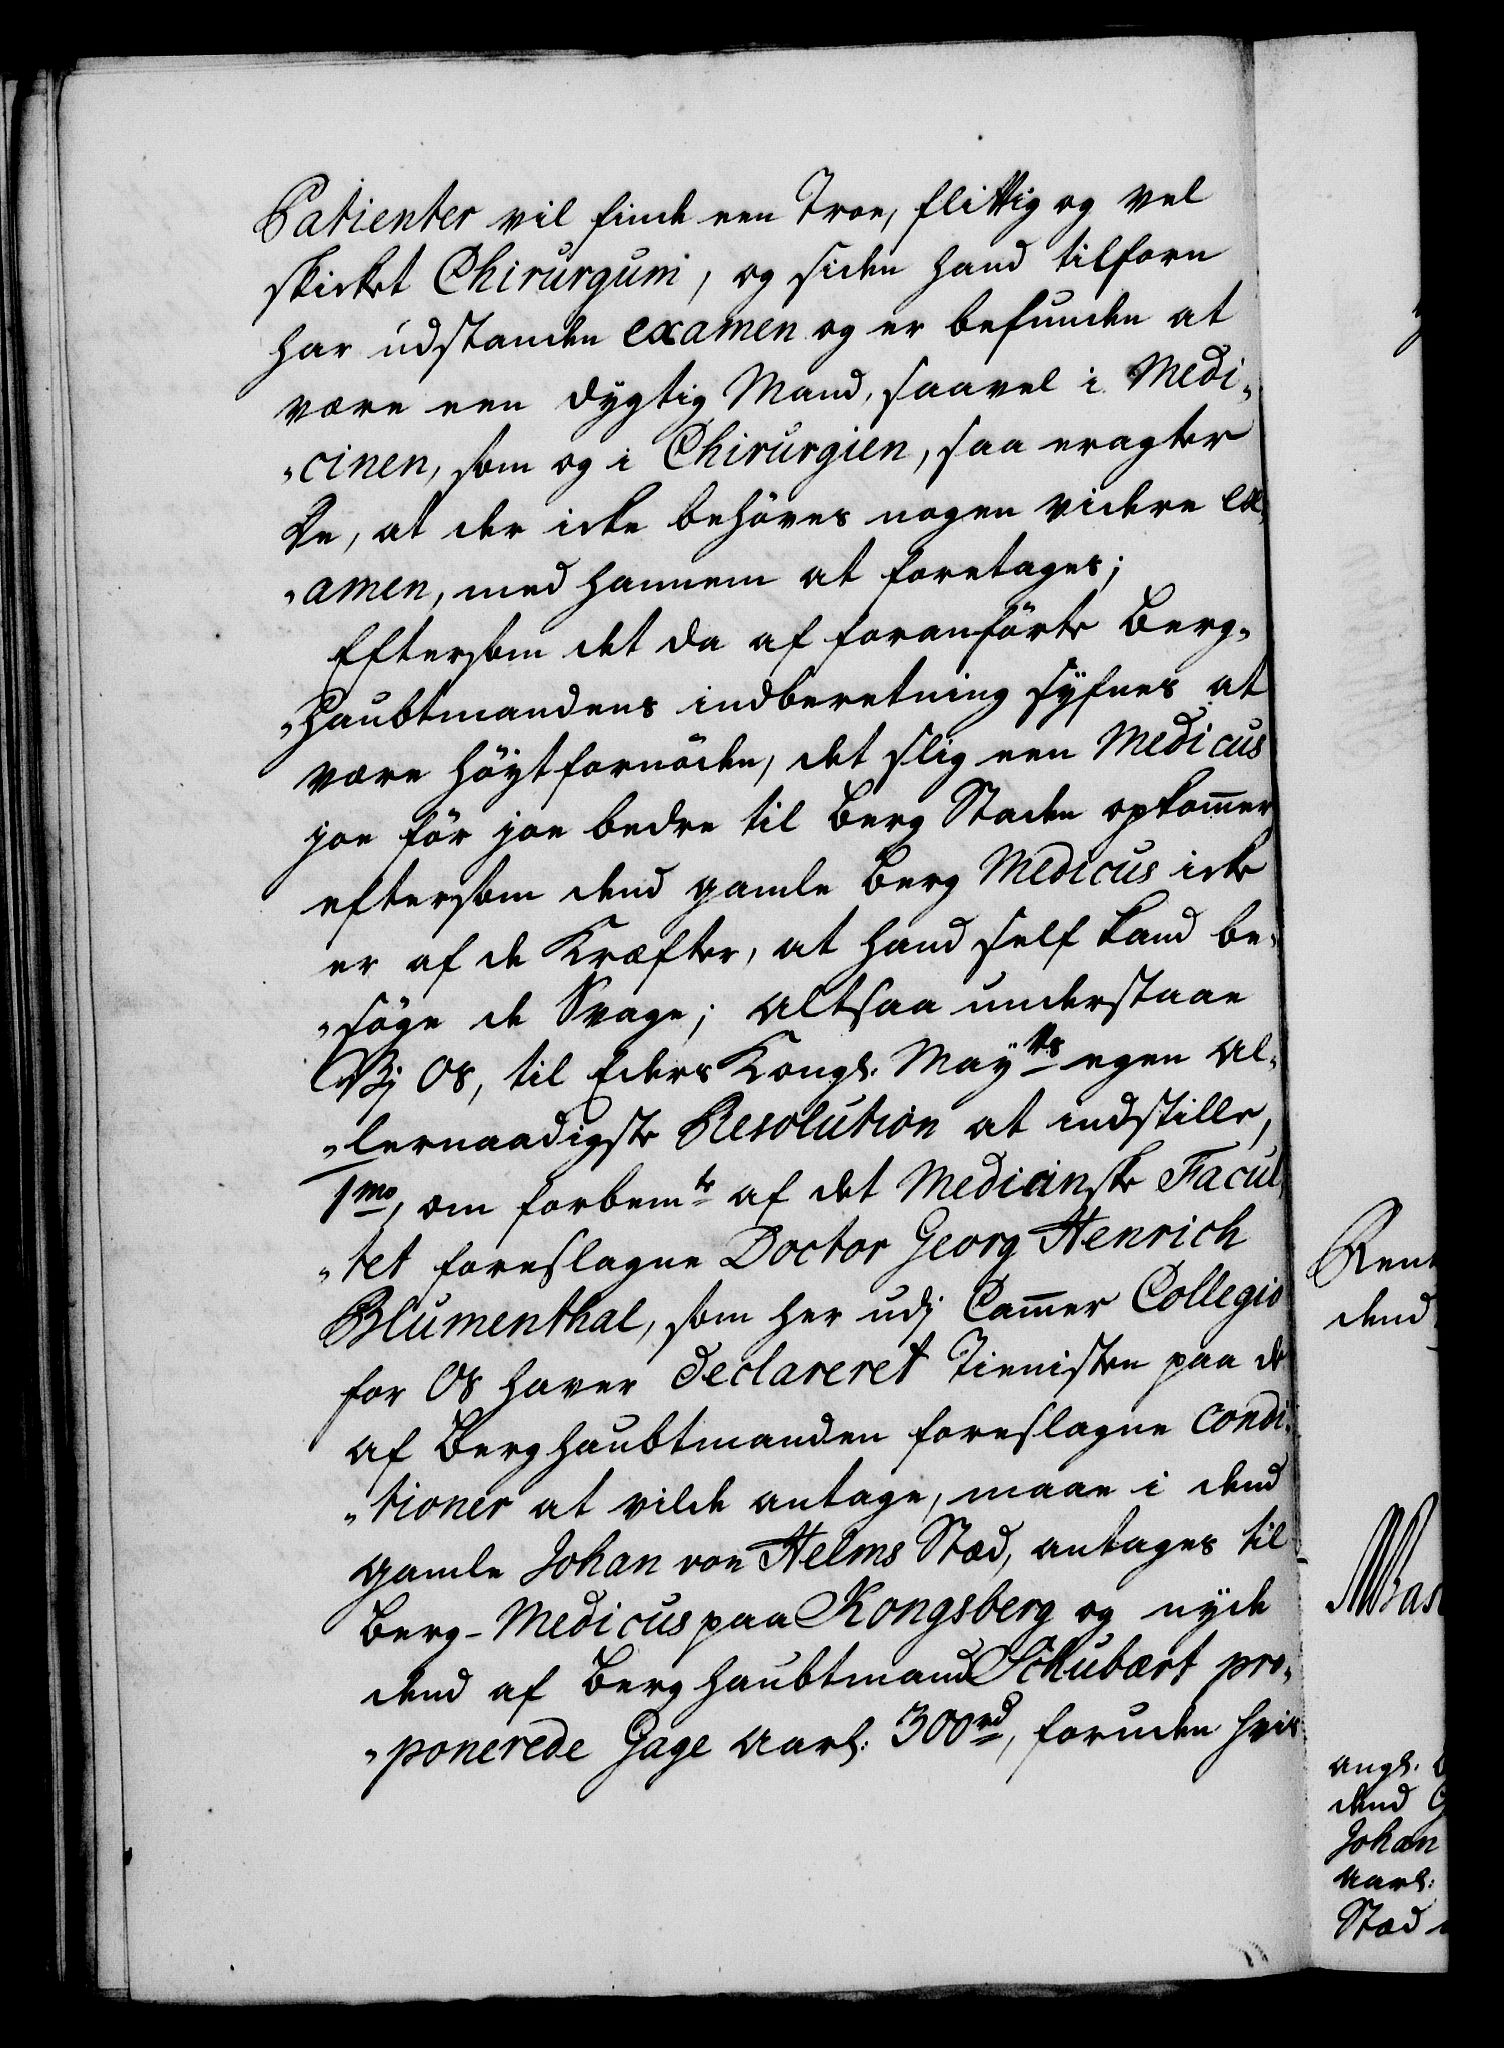 Patienter vil finde een Troe, flittig og vel
skicket Chirurgum, og siden hand tilforn
har udstanden examen og er befunden at
være een dygtig Mand, saavel i Medi„
„cinen, som og i Chirurgien, saa eragter
De, at der icke behöves nogen videre ex„
„amen, med hannem at foretages;
Eftersom det da af foranförte Berg„
„Haubtmandens indberetning syfnes at
være höyt fornöden, det slig een Medicus
joe för joe bedre til Berg Staden opkom̅er
eftersom dend gamle Berg Medicus icke
er af de Kræfter, at hand self kand be„
„söge de Svage; Altsaa understaae
Vi Os, til Eders Kongl. Mayts egen Al„
„lernaadigste Resolution at indstille,
1mo, om forbemte af det Medicinske Facul„
„tet foreslagne Doctor Georg Henrich
Blumenthal, som her udj Cam̅er Collegio
for Os haver declareret Tienisten paa de
af Berghaubtmanden foreslagne Condi„
„tioner at vilde antage, maae i dend
gamle Johan von Helms Stæd, antages til
Berg-Medicus paa Kongsberg og nyde
dend af Berghaubtmand Schubært pro„
„ponerede Gage Aarl: 300rd, foruden hvis
Rent
dend
angl.
dend
Johan
Aarl:
Stæd